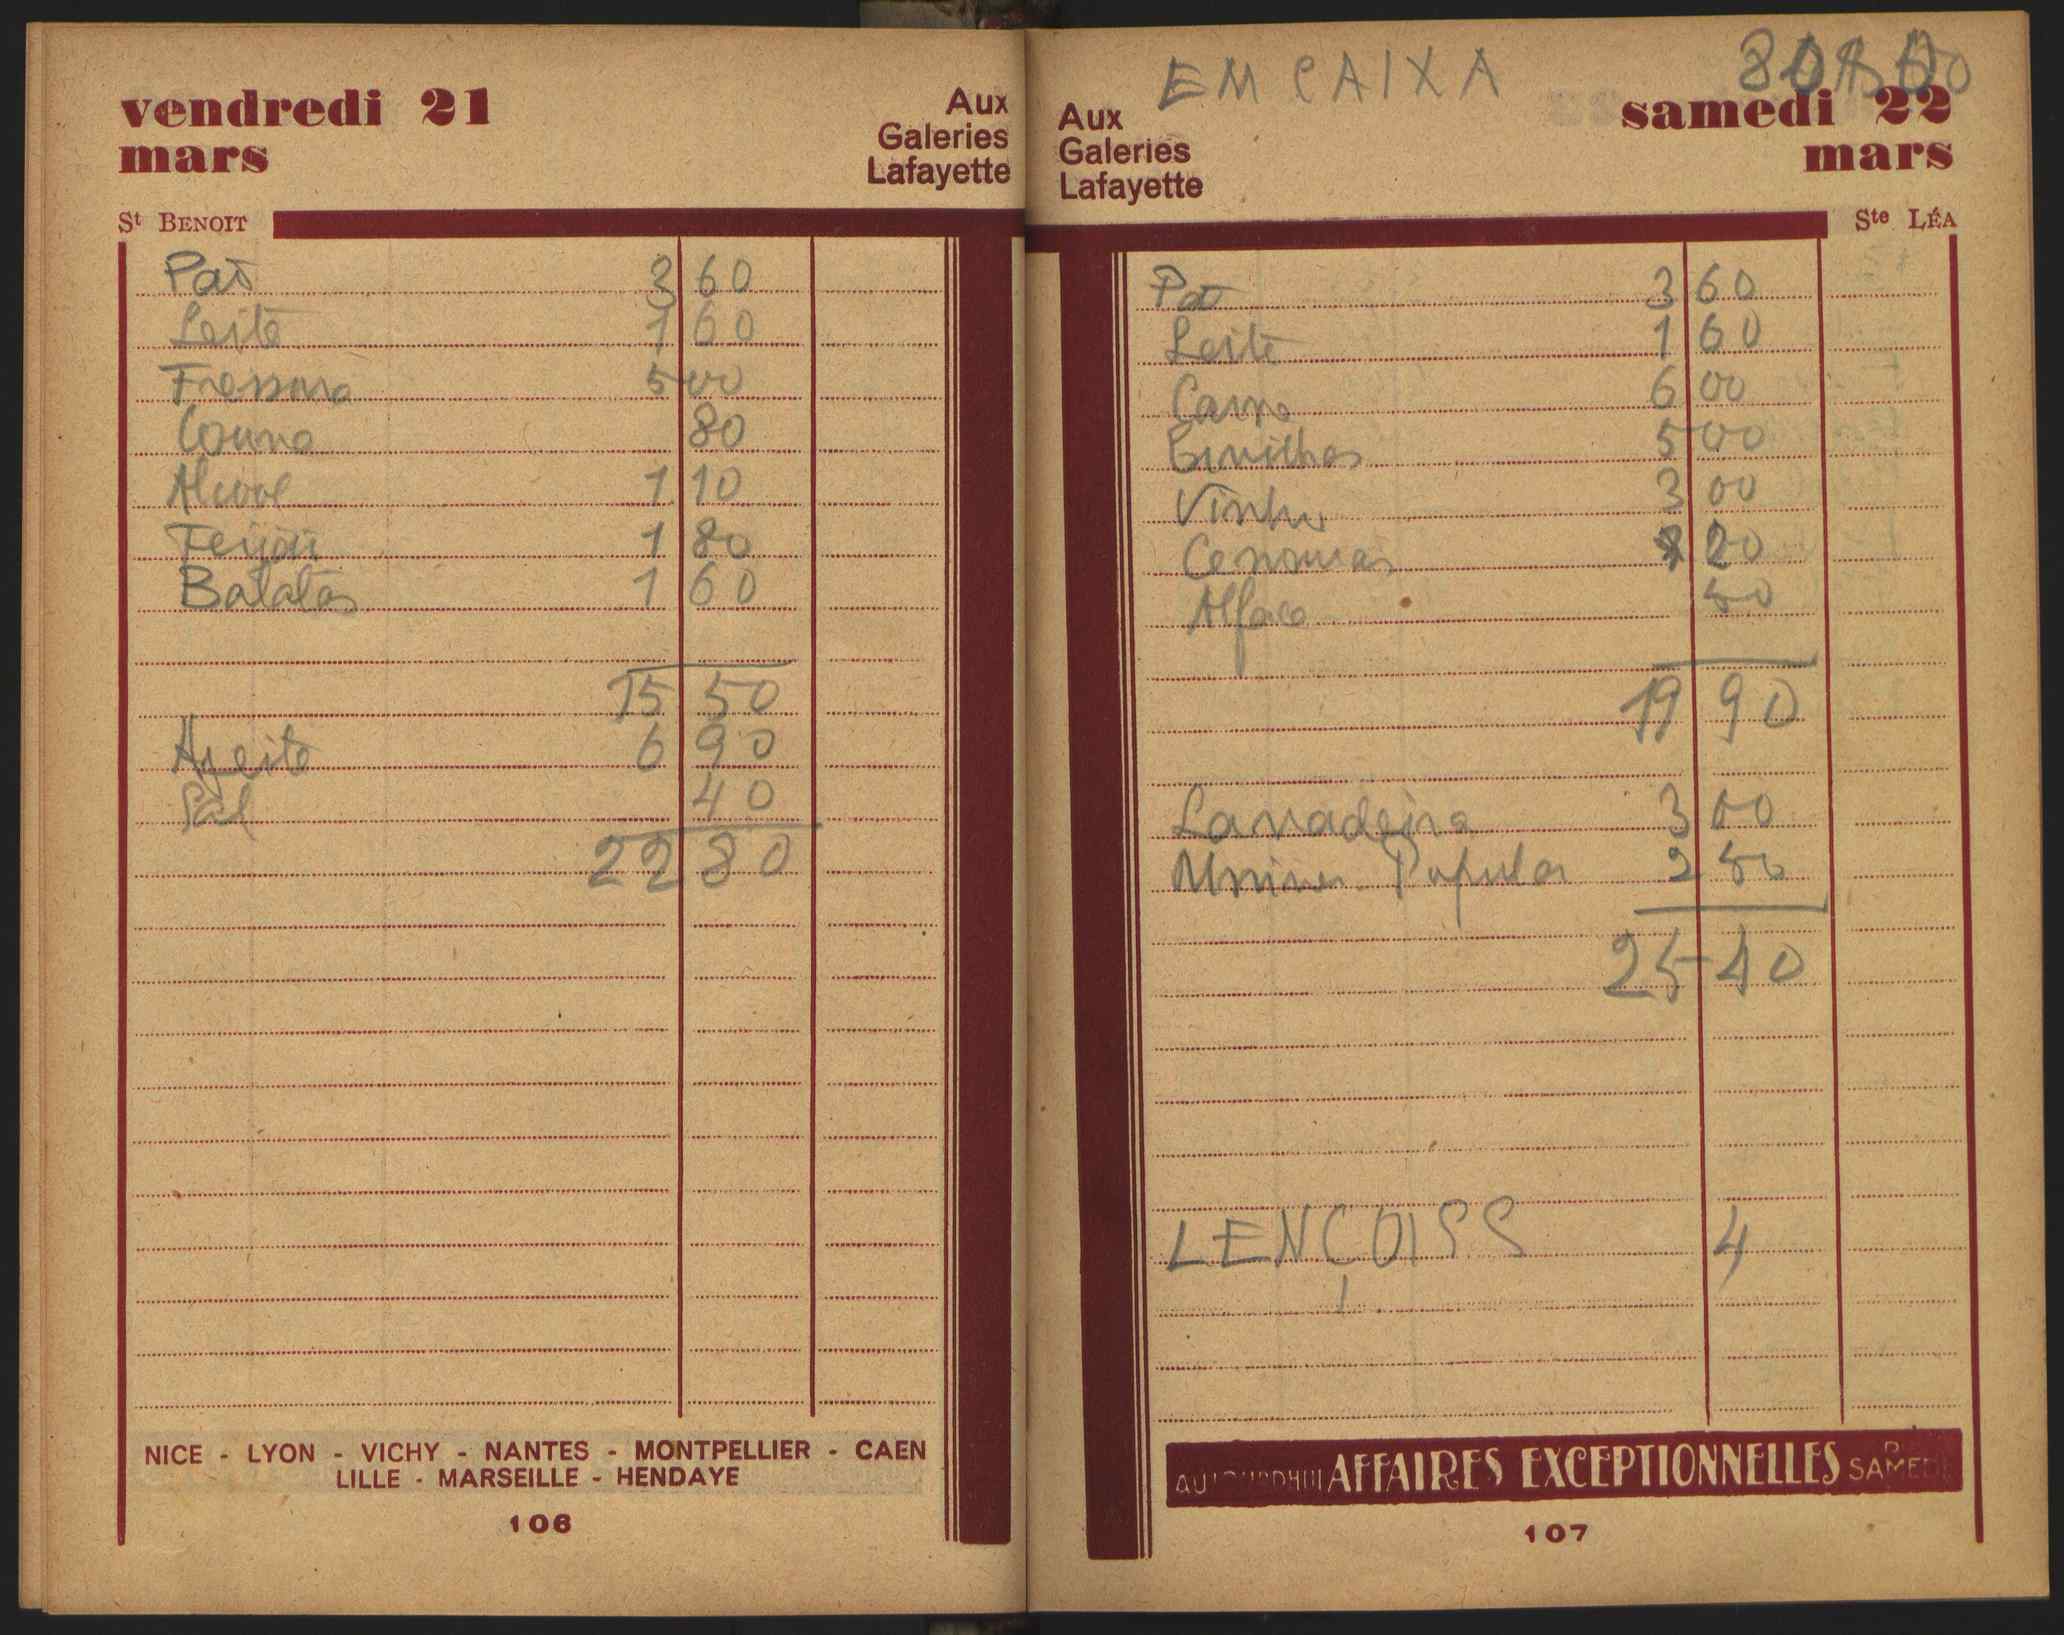 vendredi 21
mars
Aux
Galeries
Lafayette
St BENOIT
Pão 3 60
Leite 1 60
Fressura 5 00
Couve 80
Alcool 1 10
Feijão 1 80
Batatas 1 60
15 50
Azeite 6 90
Sal 40
22 80
NICE - LYON - VICHY - NANTES - MONTPELLIER - CAEN
LILLE - MARSEILLE - HENDAYE
106
EM CAIXA
Aux
Galeries
Lafayette
samedi 22
mars
Ste LÉA
Pão 3 60
Leite 1 60
Carne 6 00
Ervilhas 5 00
Vinho 3 00
Cenouras 20
Alface 50
19 90
Lavadeira 3 00
Univer. Popular 2 50
25 40
LENÇOIS S 4
AUJOURD'HUI AFFAIRES EXCEPTIONNELLES SAMEDI
107